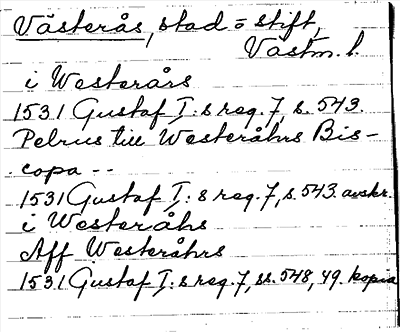 Västerås, stad = stift,
Västm. l.
i Westerårs
1531 Gustaf I:s reg. 7, s. 543.
Petrus till Westeråhrs Bis-
copa --
1531 Gustaf I:s reg. 7, s. 543. avskr.
i Westeråhs
Aff Westeråhrs
1531 Gustaf I:s reg. 7, ss. 548, 49. kopia